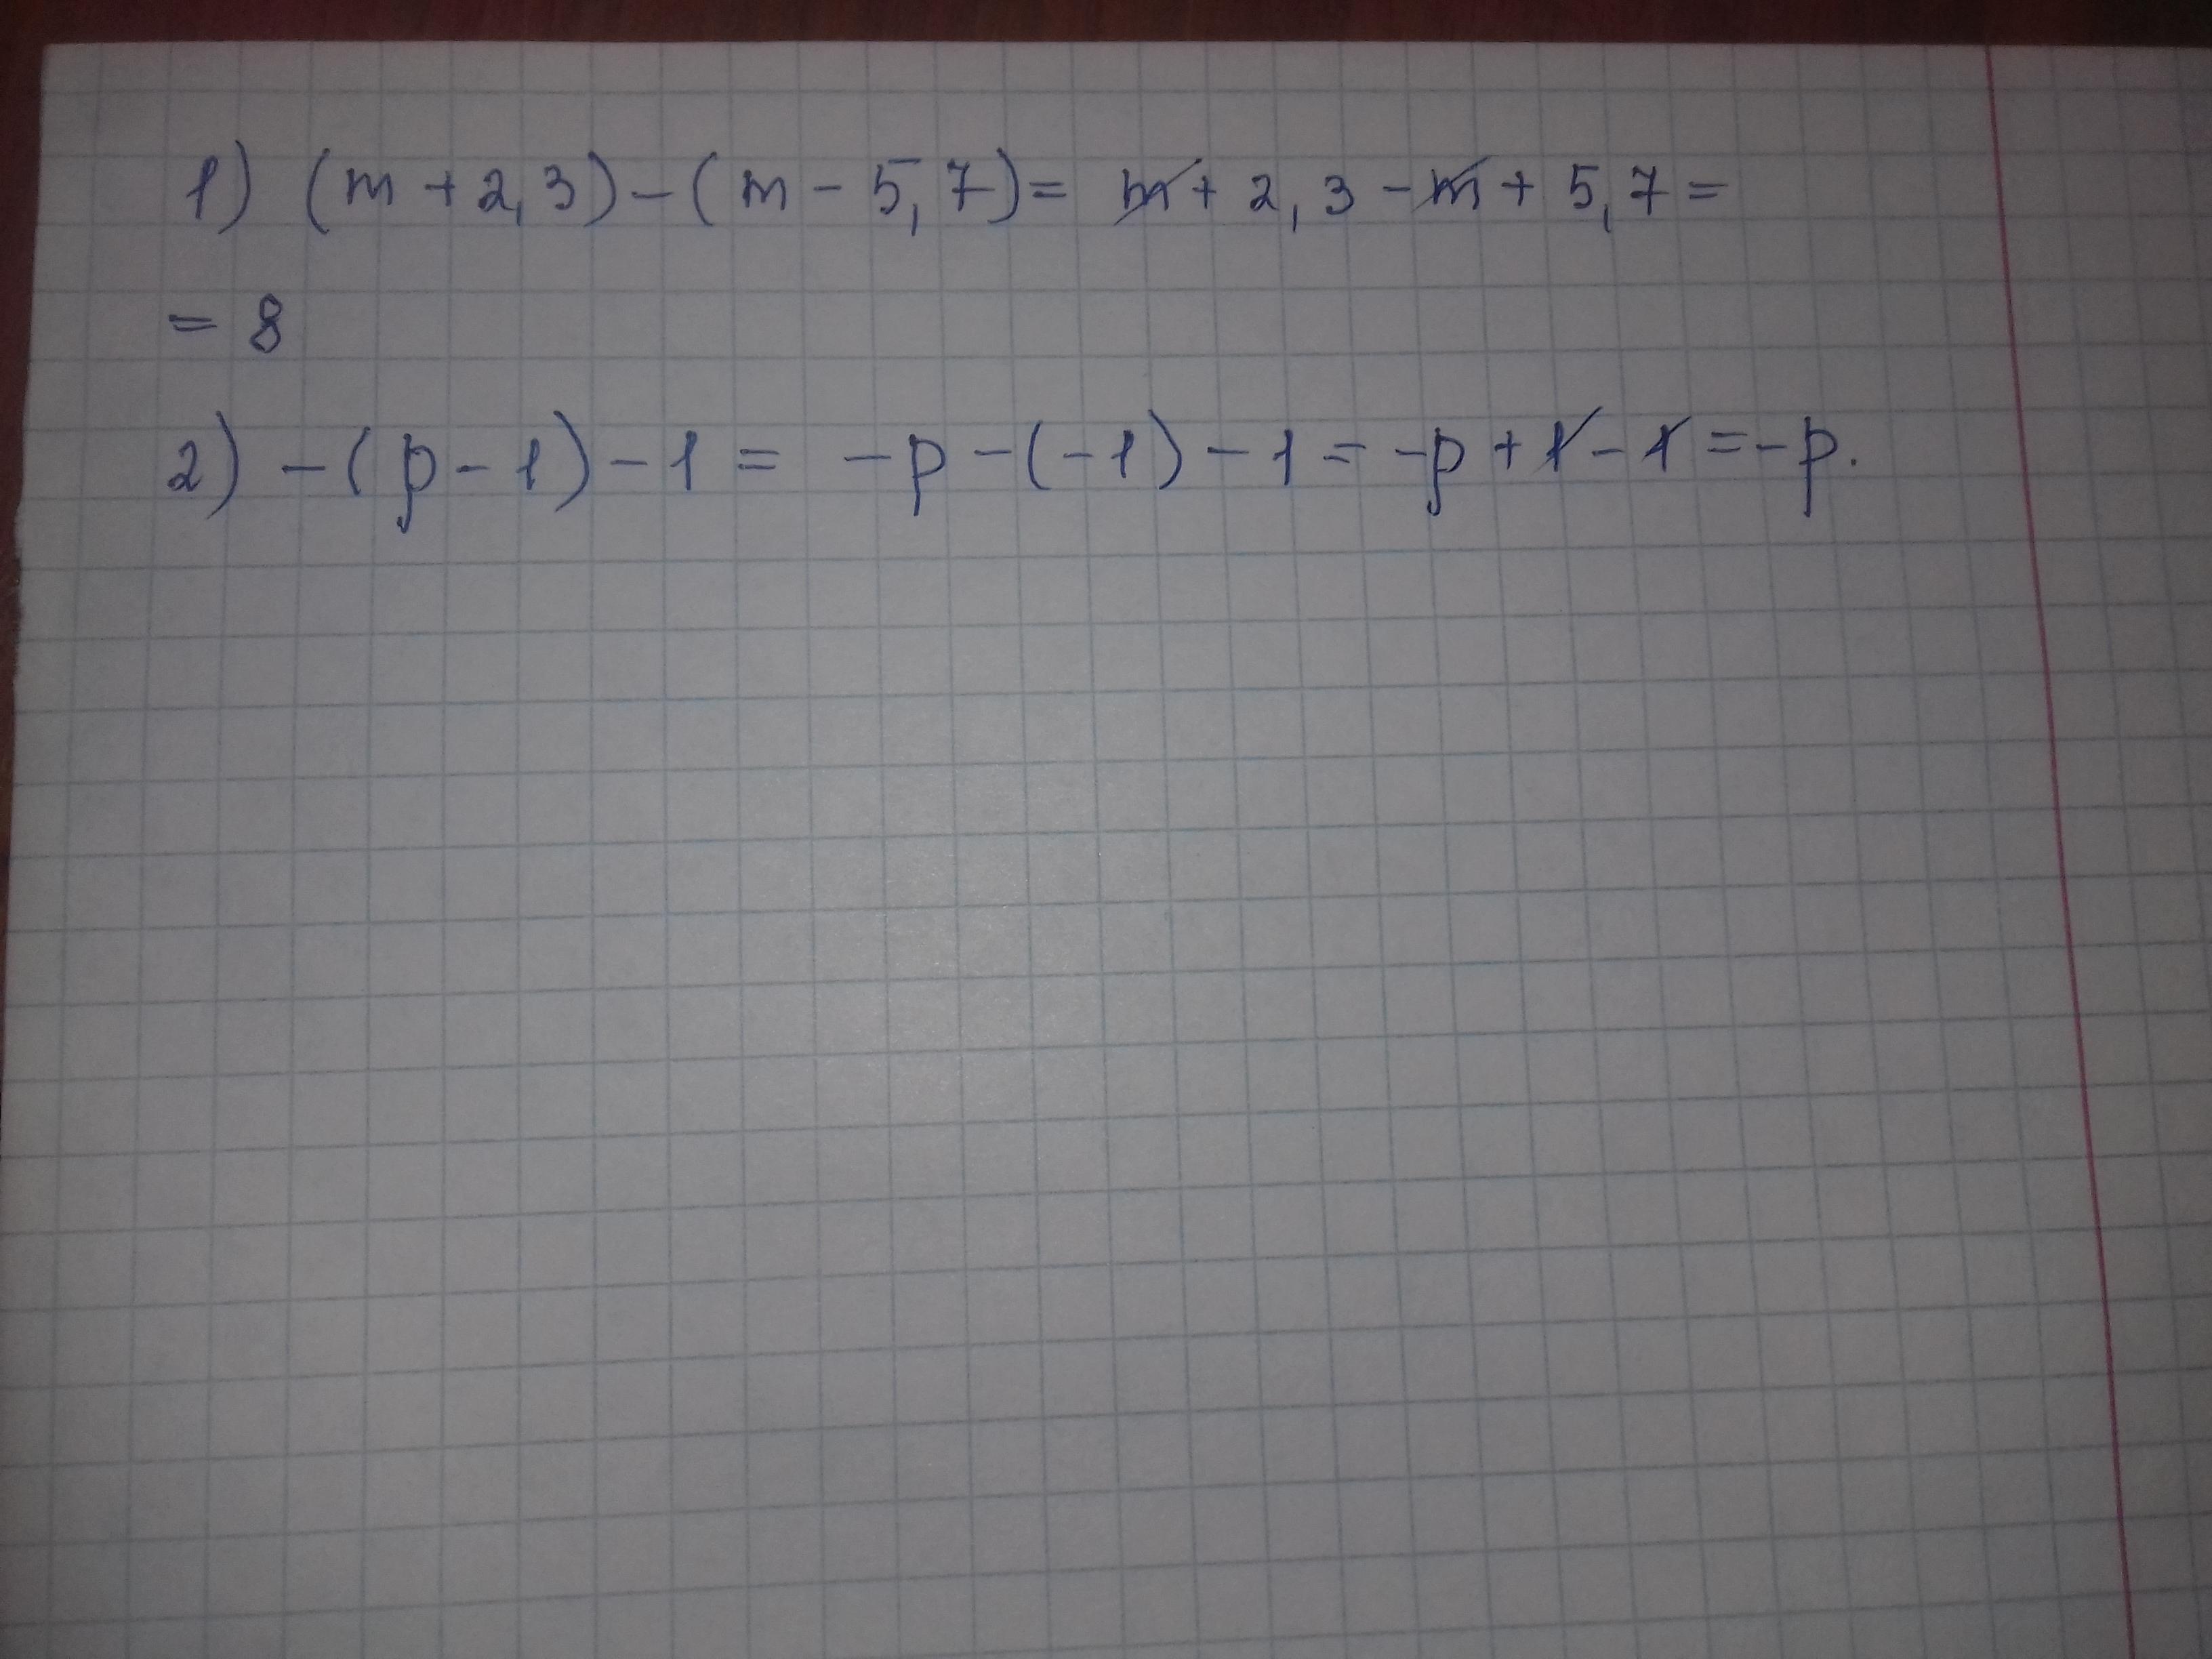 1) (m + 2,3) - (m - 5,7) = m + 2,3 - m + 5,7 =
= 8
2) - (p - 1) - 1 = - p - (-1) - 1 = -p + 1 - 1 = -p.